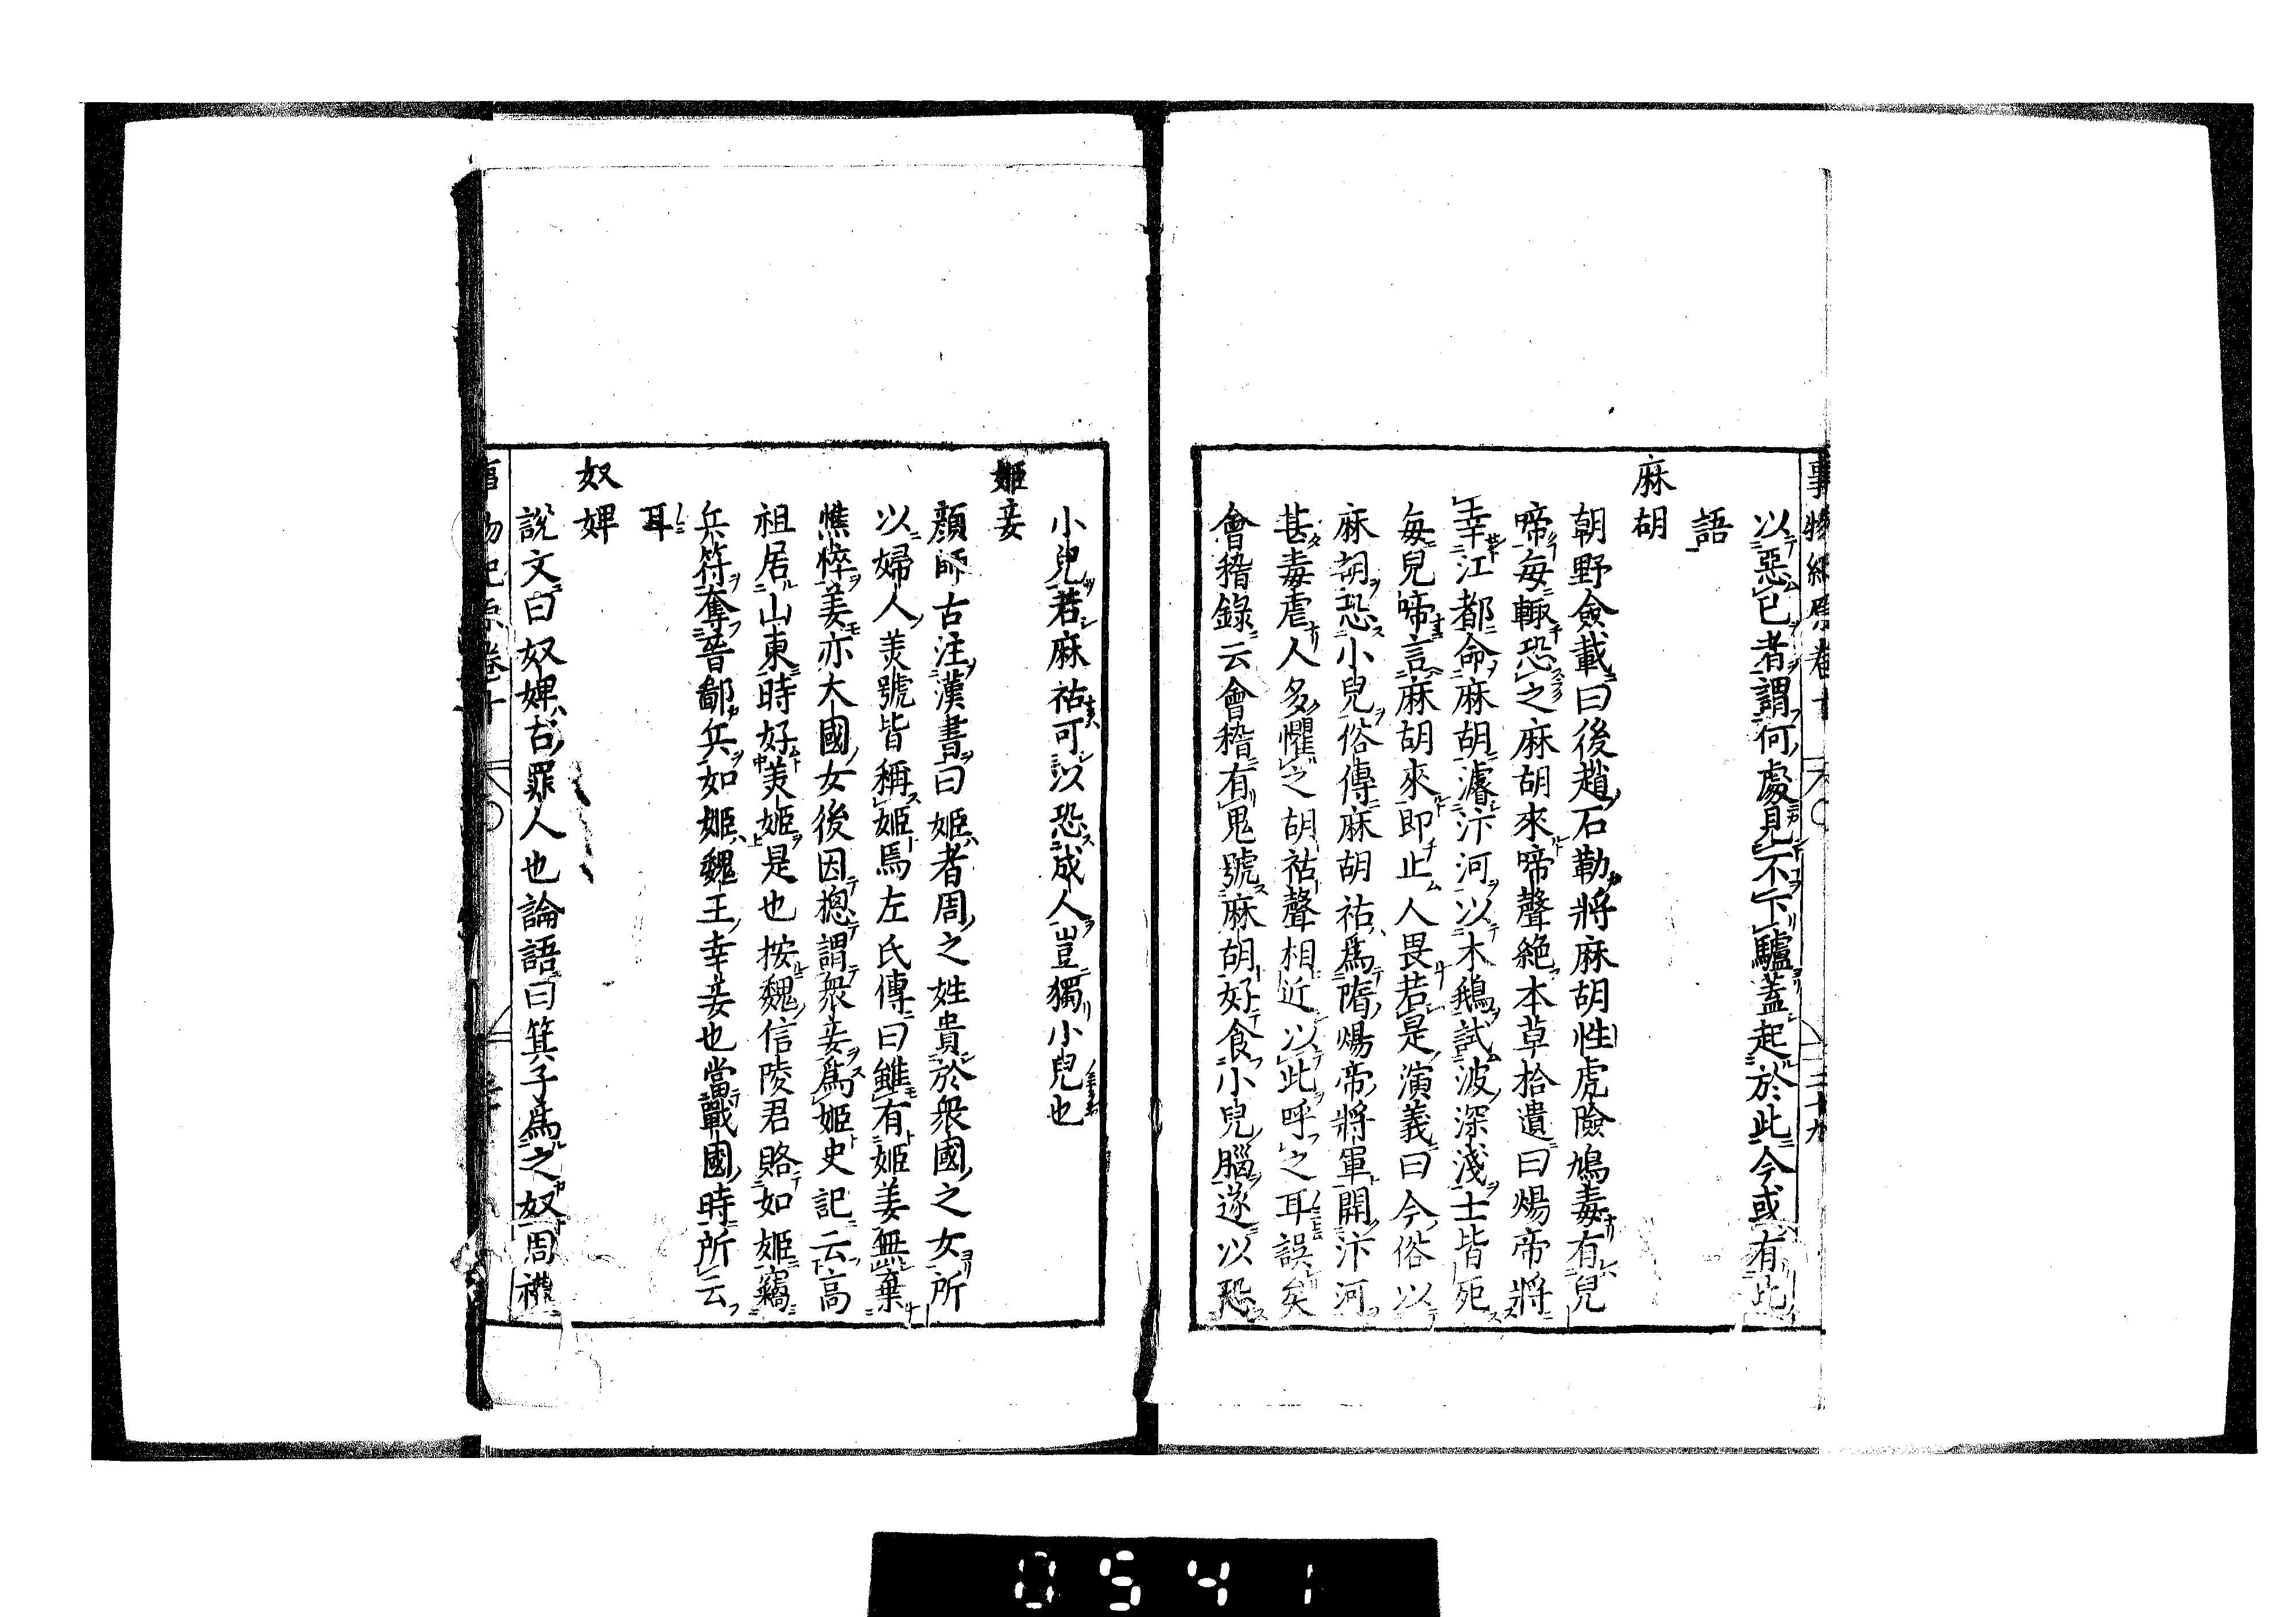 事物紀原卷十 三十九
以惡已者謂何處見不下驢蓋起於此今或有此
語
麻胡
朝野僉載曰後趙石勒將麻胡性虎險鳩毒有兒
啼每輙恐之麻胡來啼聲絶本草拾遺曰煬帝將
幸江都命麻胡濬汴河以木鵝試波深淺士皆死
每兒啼言麻胡來即止人畏若是演義曰今俗以
麻胡恐小兒俗傳麻胡祜爲隋煬帝將軍開汴河
甚毒虐人多懼之胡祜聲相近以此呼之耳誤矣
會稽錄云會稽有鬼號麻胡好食小兒腦遂以恐
小兒若麻祜可以恐成人豈獨小兒也
姬妾
顔師古注漢書曰姬者周之姓貴於衆國之女所
以婦人美號皆稱姬焉左氏傳曰雖有姬姜無棄
憔悴姜亦大國女後因摠謂衆妾爲姬史記云高
祖居山東時好美姬是也按魏信陵君賂如姬竊
兵符奪晉鄙兵如姬魏王幸妾也當戰國時所云
耳
奴婢
說文曰奴婢古罪人也論語曰箕子爲之奴周禮
事物紀原卷十